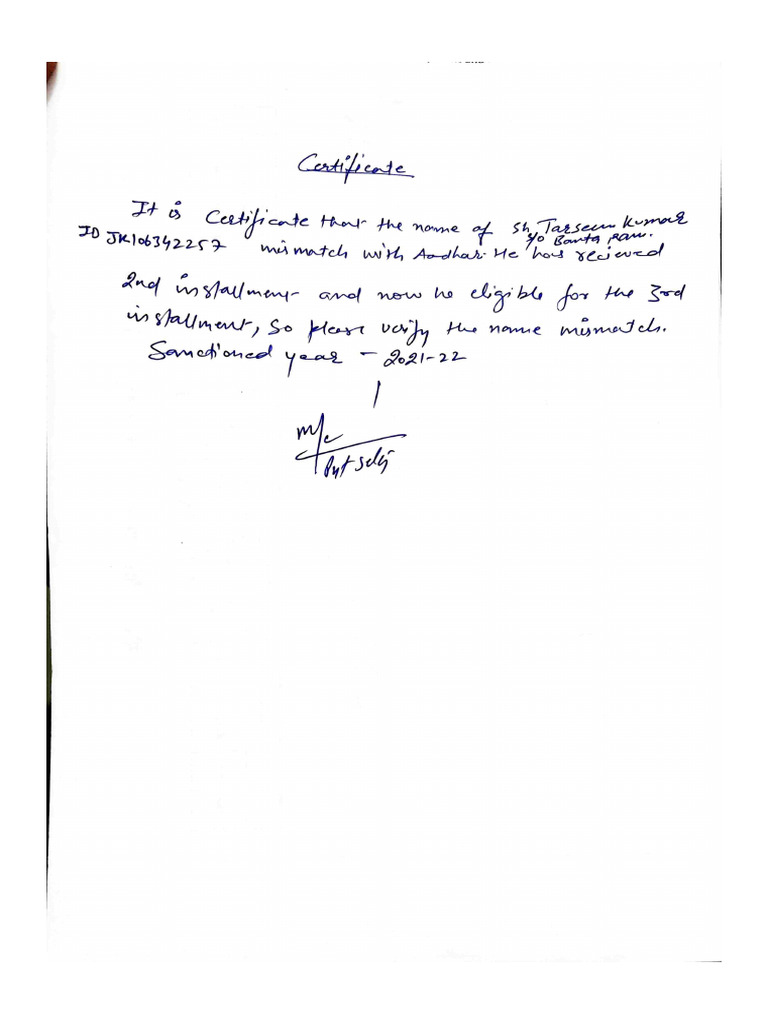 Certificate
It is Certificate that the name of Sh. Tarseem Kumar
S/o Banta Ram.
ID JK106342257 mismatch with Aadhar. He has recieved
2nd installment and now he eligible for the 3rd
installment, So please verify the name mismatch.
Sanctioned year - 2021-22